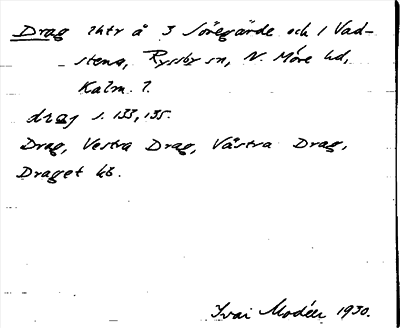 Drag 2htr å 3 Söregärde och 1 Vad-
stena, Ryssby sn, N. Möre hd,
Kalm. l.
drag s. 133, 135.
Drag, Vestra Drag, Västra Drag,
Draget kb.
Ivar Modéer 1930.